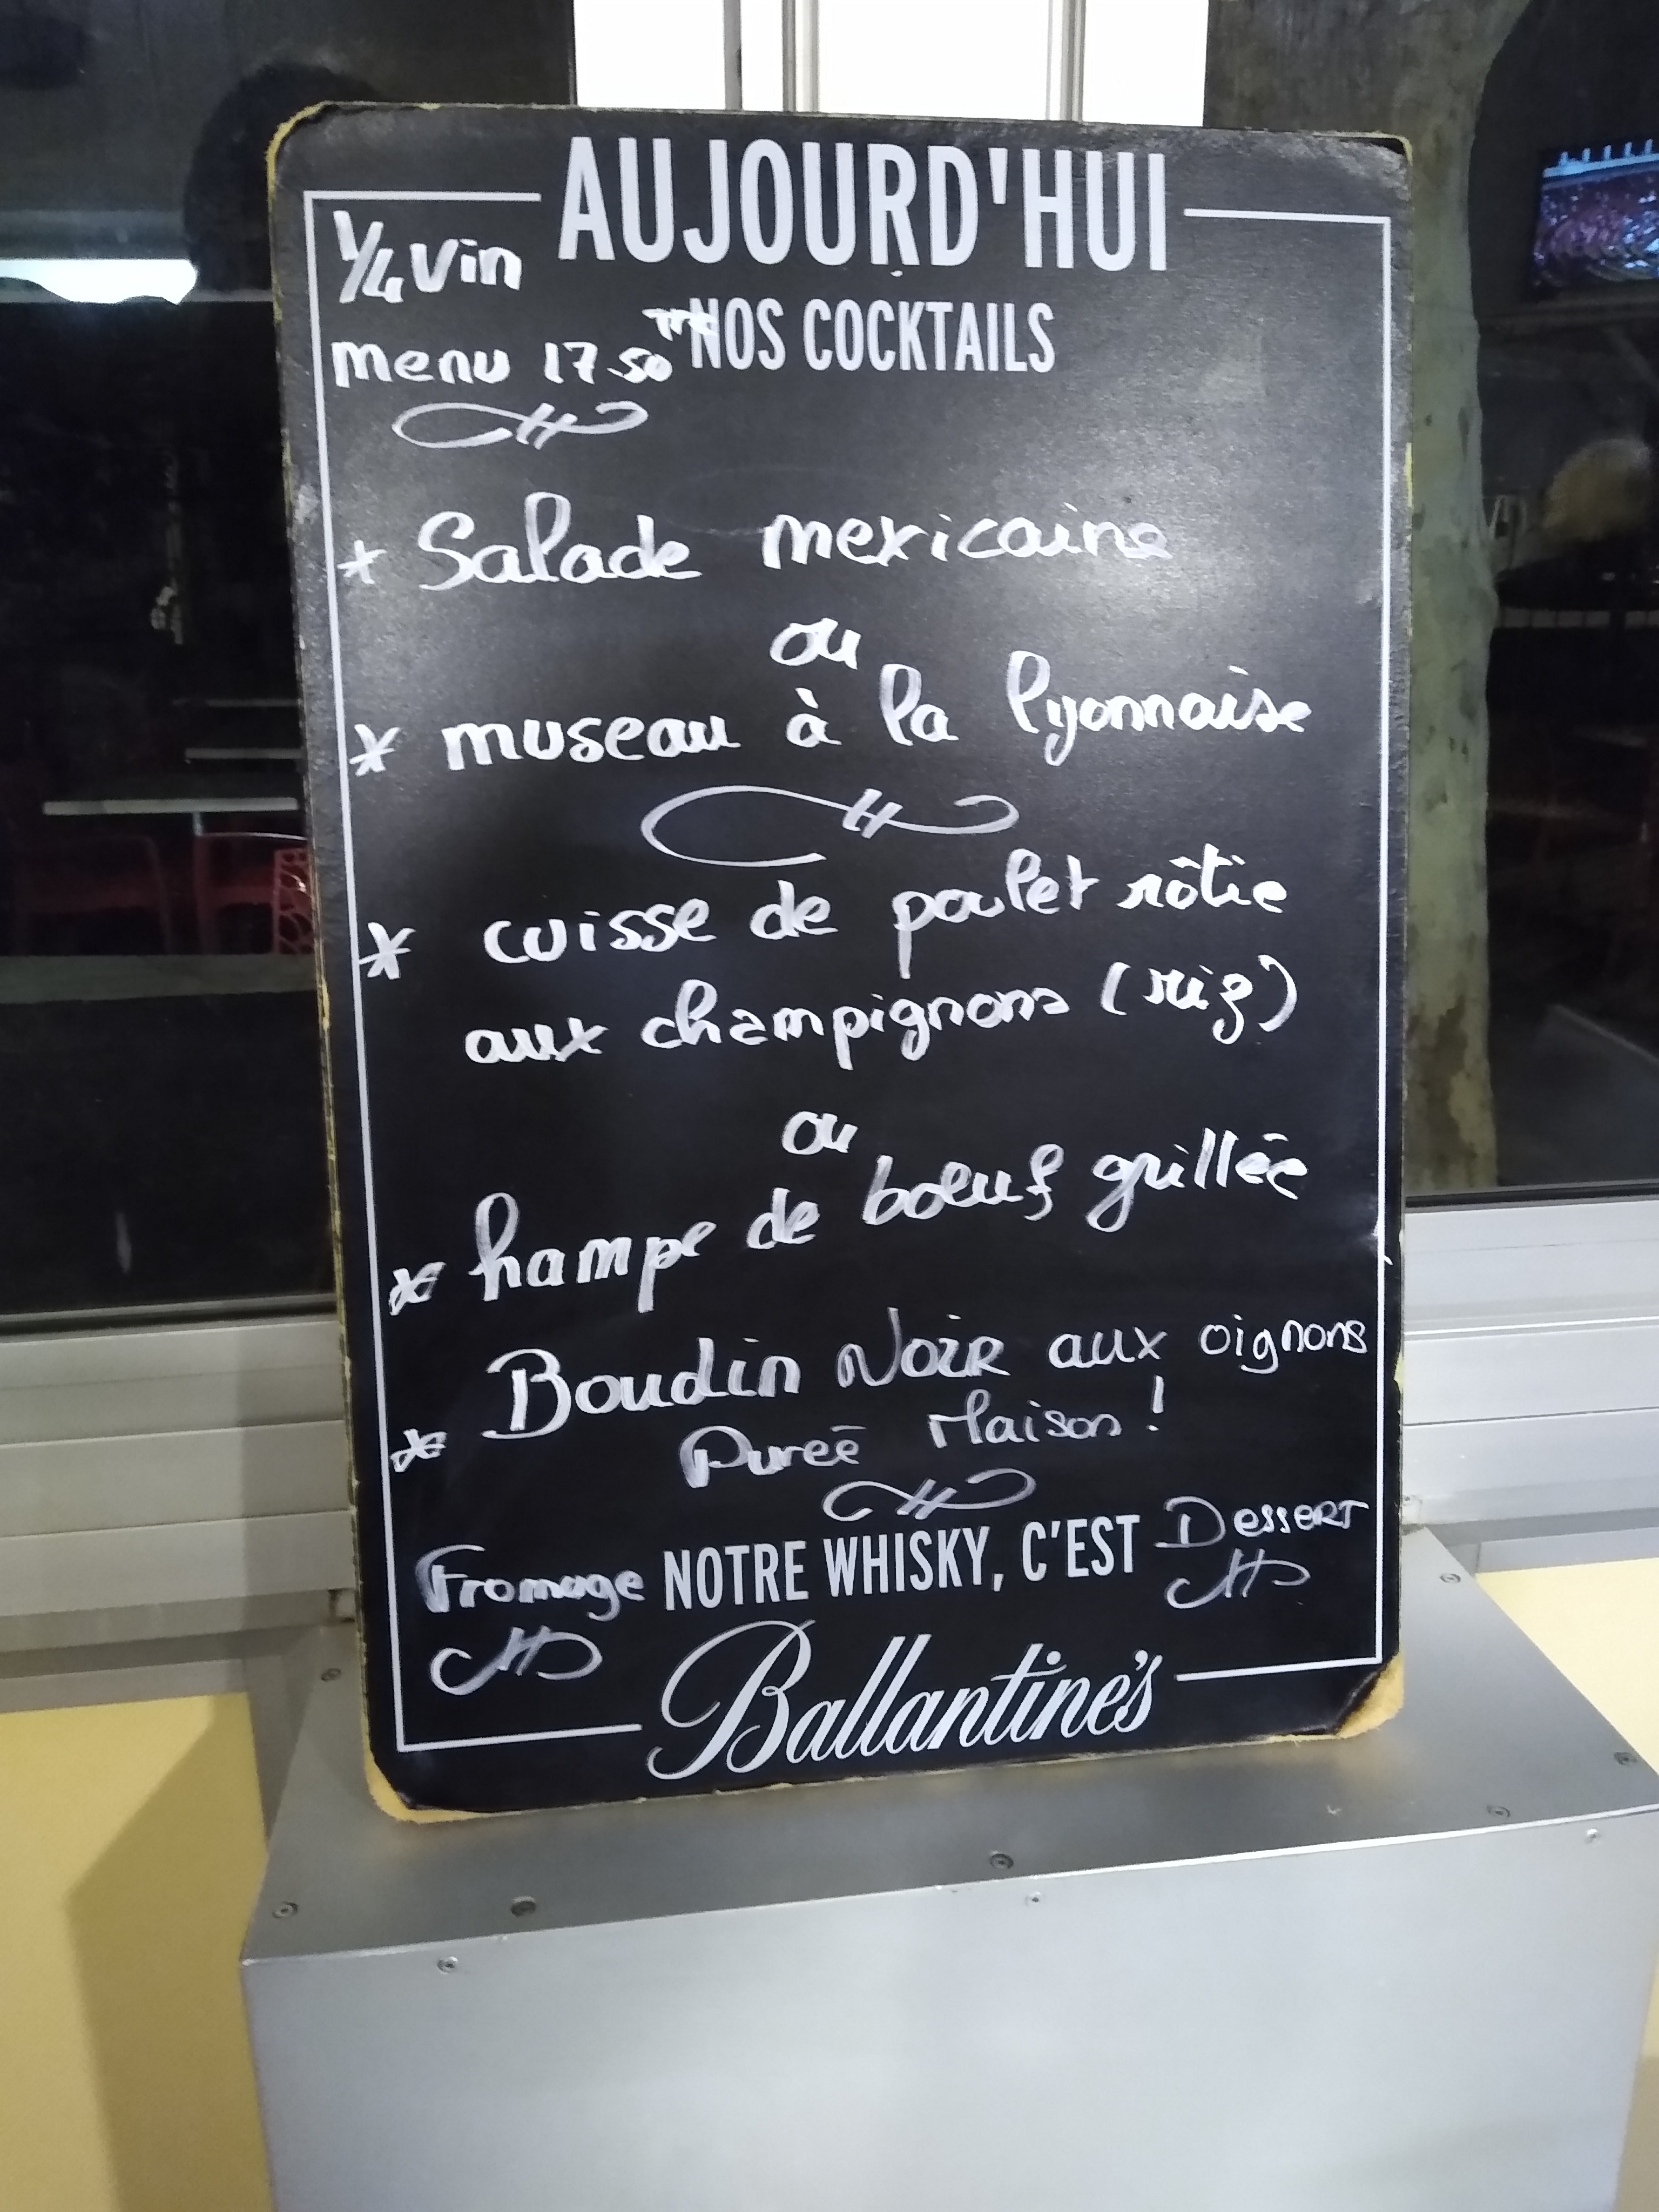 AUJOURD'HUI
1/4 Vin
NOS COCKTAILS
menu 17.50
* Salade mexicaine
ou
* museau à la lyonnaise
* cuisse de poulet rôtie
aux champignons (riz)
ou
* hampe de boeuf grillée
* Boudin Noir aux oignons
Pureé Maison !
Fromage NOTRE WHISKY, C'EST Dessert
Ballantine's